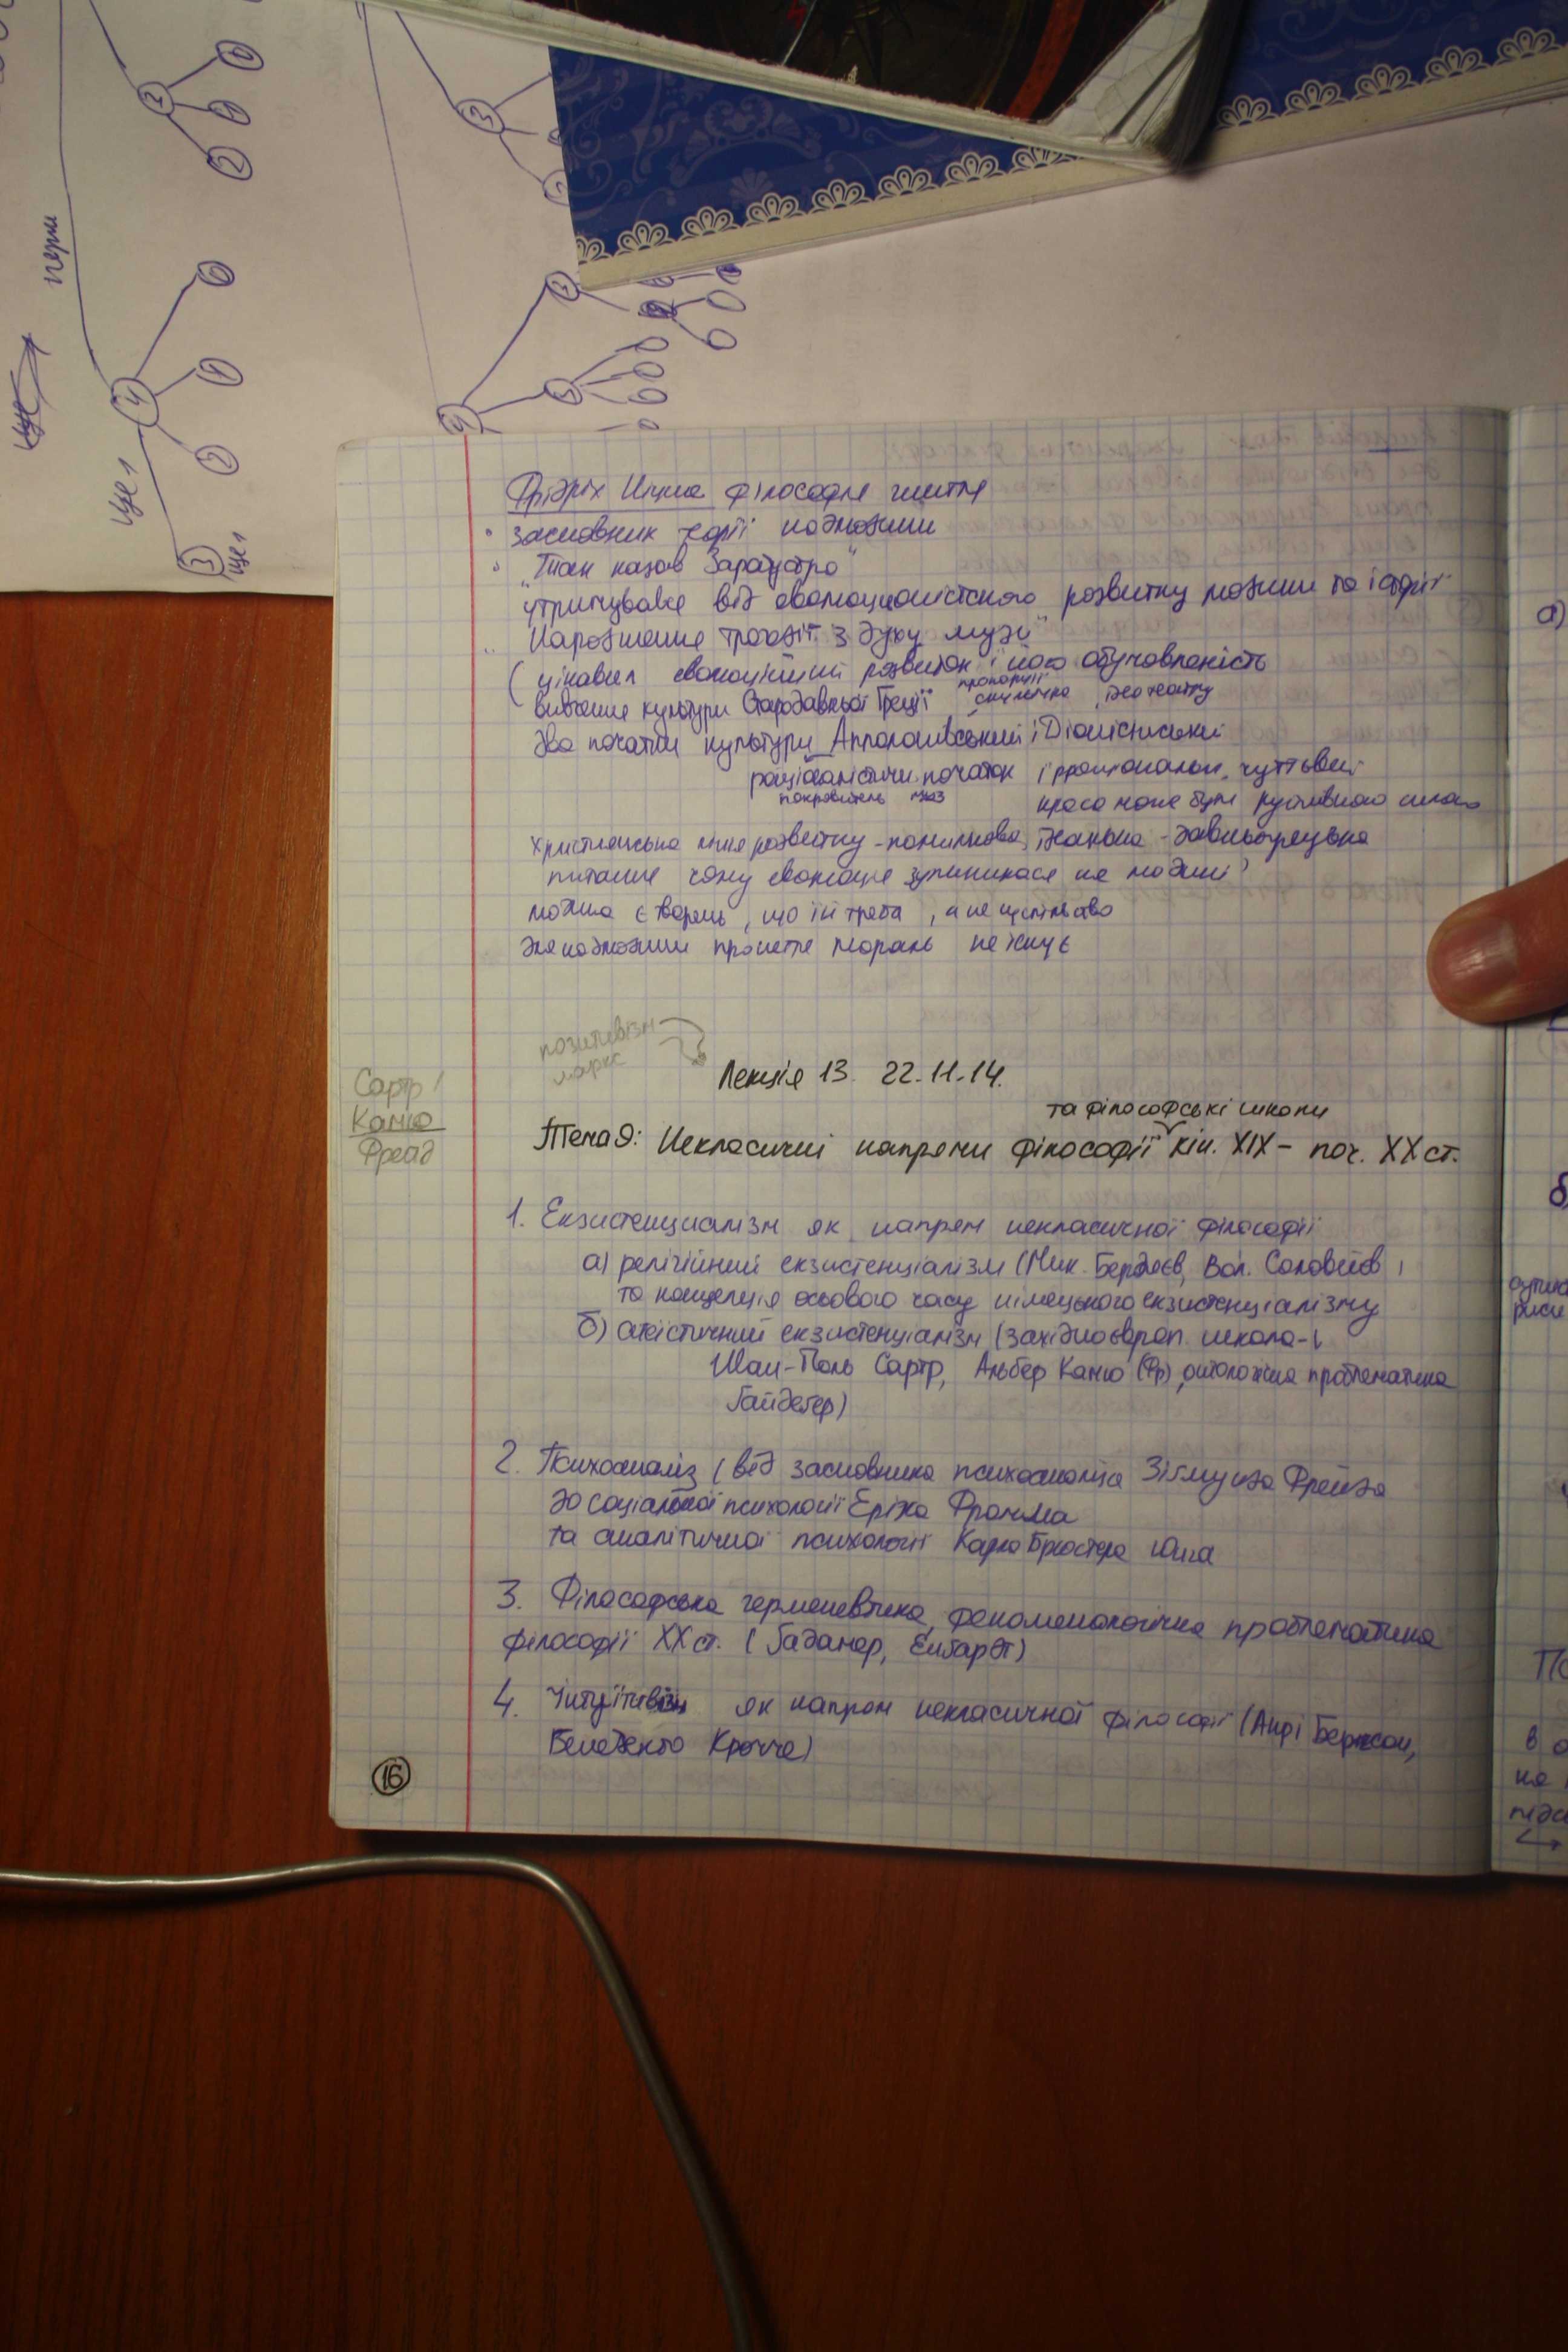 Фрідріх Ніцше філософія життя
засновник теорії надлюдини
"Так казав Заратустра"
від еволюціоністського розвитку людини та історії
"Народження трагедії з духу музи"
(цікавил еволюційний розвиток і його обумовленість
вивчение культури Стародавньої Греції пропорції скульптура, театру
два початки культури Апполонівський і Діонісійський
раціоналістичн. початок ірраціональн. чуттєвий
покровитель муз краса може бути руйнівною силою
християнська лінія розвитку - помилкова, ідеальна - давньогрецька
питание чому еволюція зупинилася на людині?
людина є творець, що їй треба, а не
для надлюдини мораль не існує
позитивізм
маркс
Лекція 13. 22.11.14.
Сартр
Камю
Фрейд
та філософські школи
Тема 9: Некласичні напрями філософії кін. XIX - поч. XX ст.
1. Екзистенциалізм як напрям некласичної філософії
а) релігійний екзистенціалізм (Мик. Бердяєв, Вол. Соловйов,
та концепція осьового часу німецького екзистенціалізму
б) атеїстичний екзистенціалізм (західноєвроп. школа -
Жан-Поль Сартр, Альбер Камю (Фр), онтологічна проблематика
Гайдегер)
2. Психоаналіз (від засновника психоаналіза Зігмунда Фрейда
до соціальної психології Еріха Фромма
та аналітичної психології Карла Юнга
3. Філософська герменевтика, феноменологічна проблематика
філософії XX ст. (Гадамер,
4. Інтуїтивізм як напрям некласичної філософії (Анрі Бергсон,
Бенедетто Кроче)
16
ще 1
3
4
2